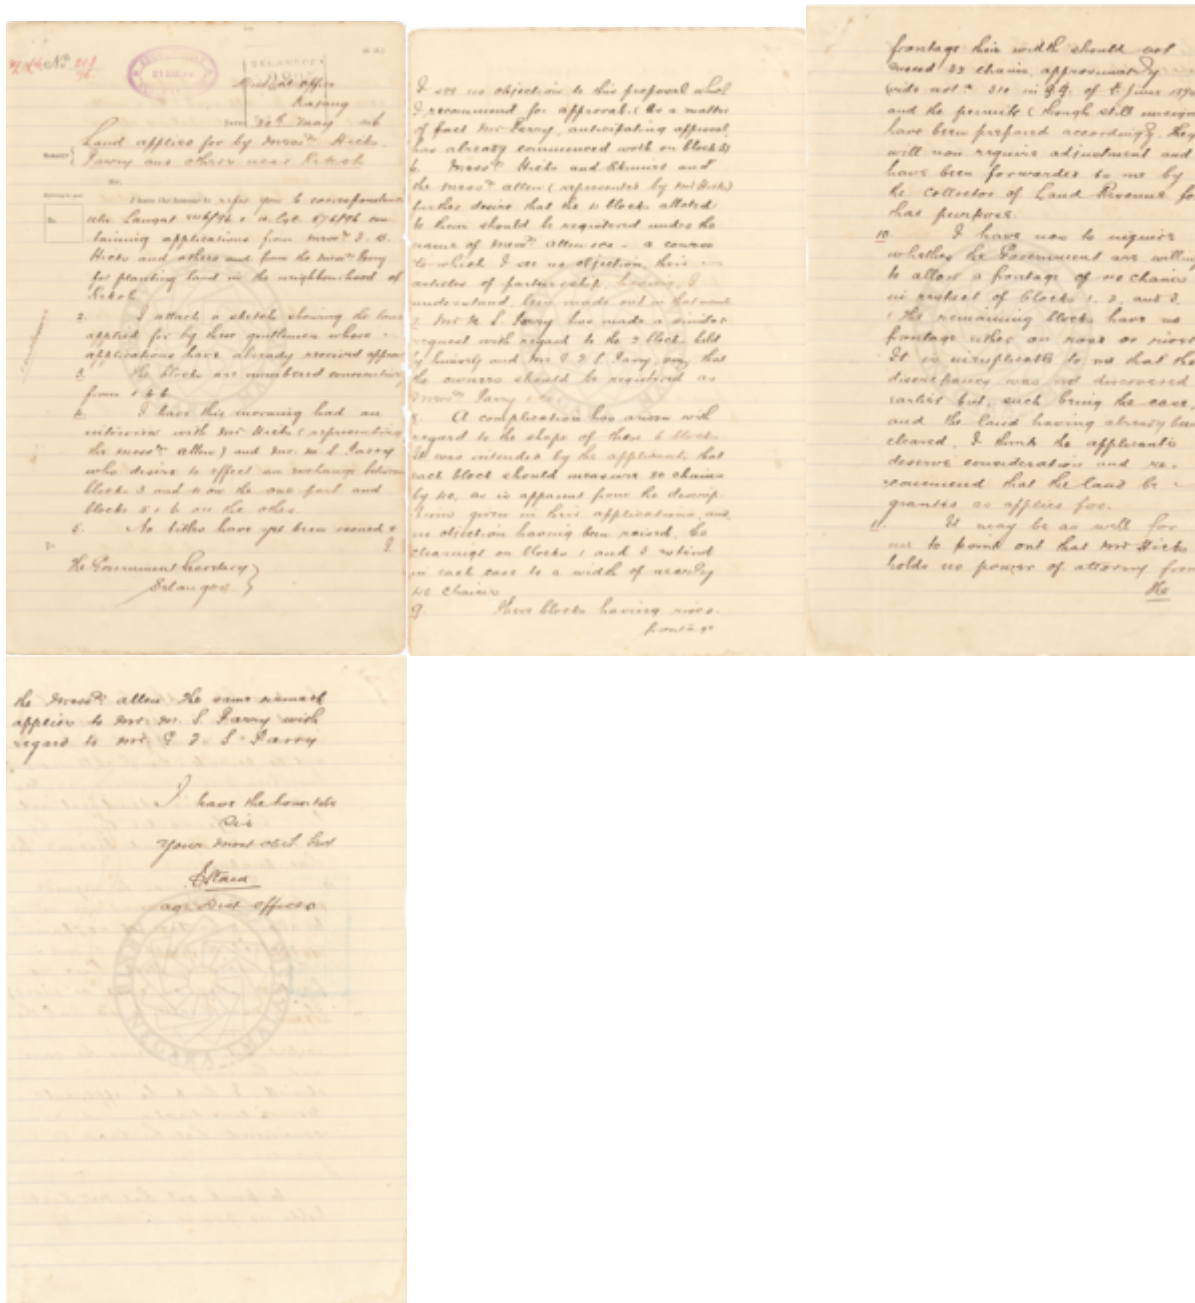 District Office
Kajang
20th May 96
Land applied for by Messrs Hicks,
Parry and others near Kekoh
Sir,
I have the honour to refer you to correspondence
containing applications from Messrs
Hicks and others and from the Messrs Parry
for planting land in the neighbourhood of
Kekoh
2. I attach a sketch showing the land
applied for by these gentlemen whose
applications have already received approval
3. The blocks are numbered consecutively
from 1 to 6.
4. I have this morning had an
interview with Mr Hicks (representing
the Messrs Allen) and Mr. M. S. Parry
who desire to effect an exchange between
blocks 3 and 4 on the one part and
blocks 5 & 6 on the other.
5. No titles have yet been issued &
I
The Government Secretary
Selangor
I see no objection to this proposal which
I recommend for approval. (As a matter
of fact Mr Parry, anticipating approval,
has already commenced work on block 3)
6. Messrs Hicks and and
the Messrs Allen (represented by Mr Hicks)
further desire that the blocks allotted
to them should be registered under the
name of Messrs Allen a course
to which I see no objection, their
articles of partnership, having, I
understand, been made out in that name
7. Mr M. S. Parry has made a similar
request with regard to the 2 blocks held
by himself and Mr Parry, that
the owners should be registered as
Messrs Parry
8. A complication has arisen with
regard to the shape of these 6 blocks
It was intended by the applicants that
each block should measure 80 chains
by 40, as is apparent from the descrip-
tions given in their applications, and,
no objection having been raised, the
clearings on blocks 1 and 3 extend
in each case to a width of nearly
40 chains
9. These blocks having river
frontage
frontage their width should not
exceed chains, approximately
vide not. 310 in G.G. of 5 June 189
and the permits (though still unsigned)
have been prepared accordingly. They
will now require adjustment and
have been forwarded to me by
the Collector of Land Revenue for
this purpose.
10. I have now to enquire
whether the Government are willing
to allow a frontage of 40 chains
in respect of blocks 1. 2. and 3.
(The remaining blocks have no
frontage either on road or river)
It is to me that the
discrepancy was not discovered
earlier but, such being the case,
and the land having already been
cleared, I think the applicants
deserve consideration and re-
commend that the land be
granted as applied for.
11. It may be as well for
me to point out that Mr Hicks
holds no power of attorney from
the
the Messrs Allen. The same remark
applies to Mr. M. S. Parry with
regard to Mr. Parry
I have the honour to be
Sir
Your most obed. Servt
Ag. Dist Officer